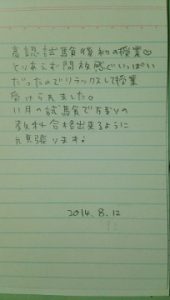 高認試験後初の授業♡
とりあえず開放感でいっぱい
だったのでリラックスして授業
受けられました。
11月の試験で残りの
教科合格出来るように
頑張ります。
2014.8.12